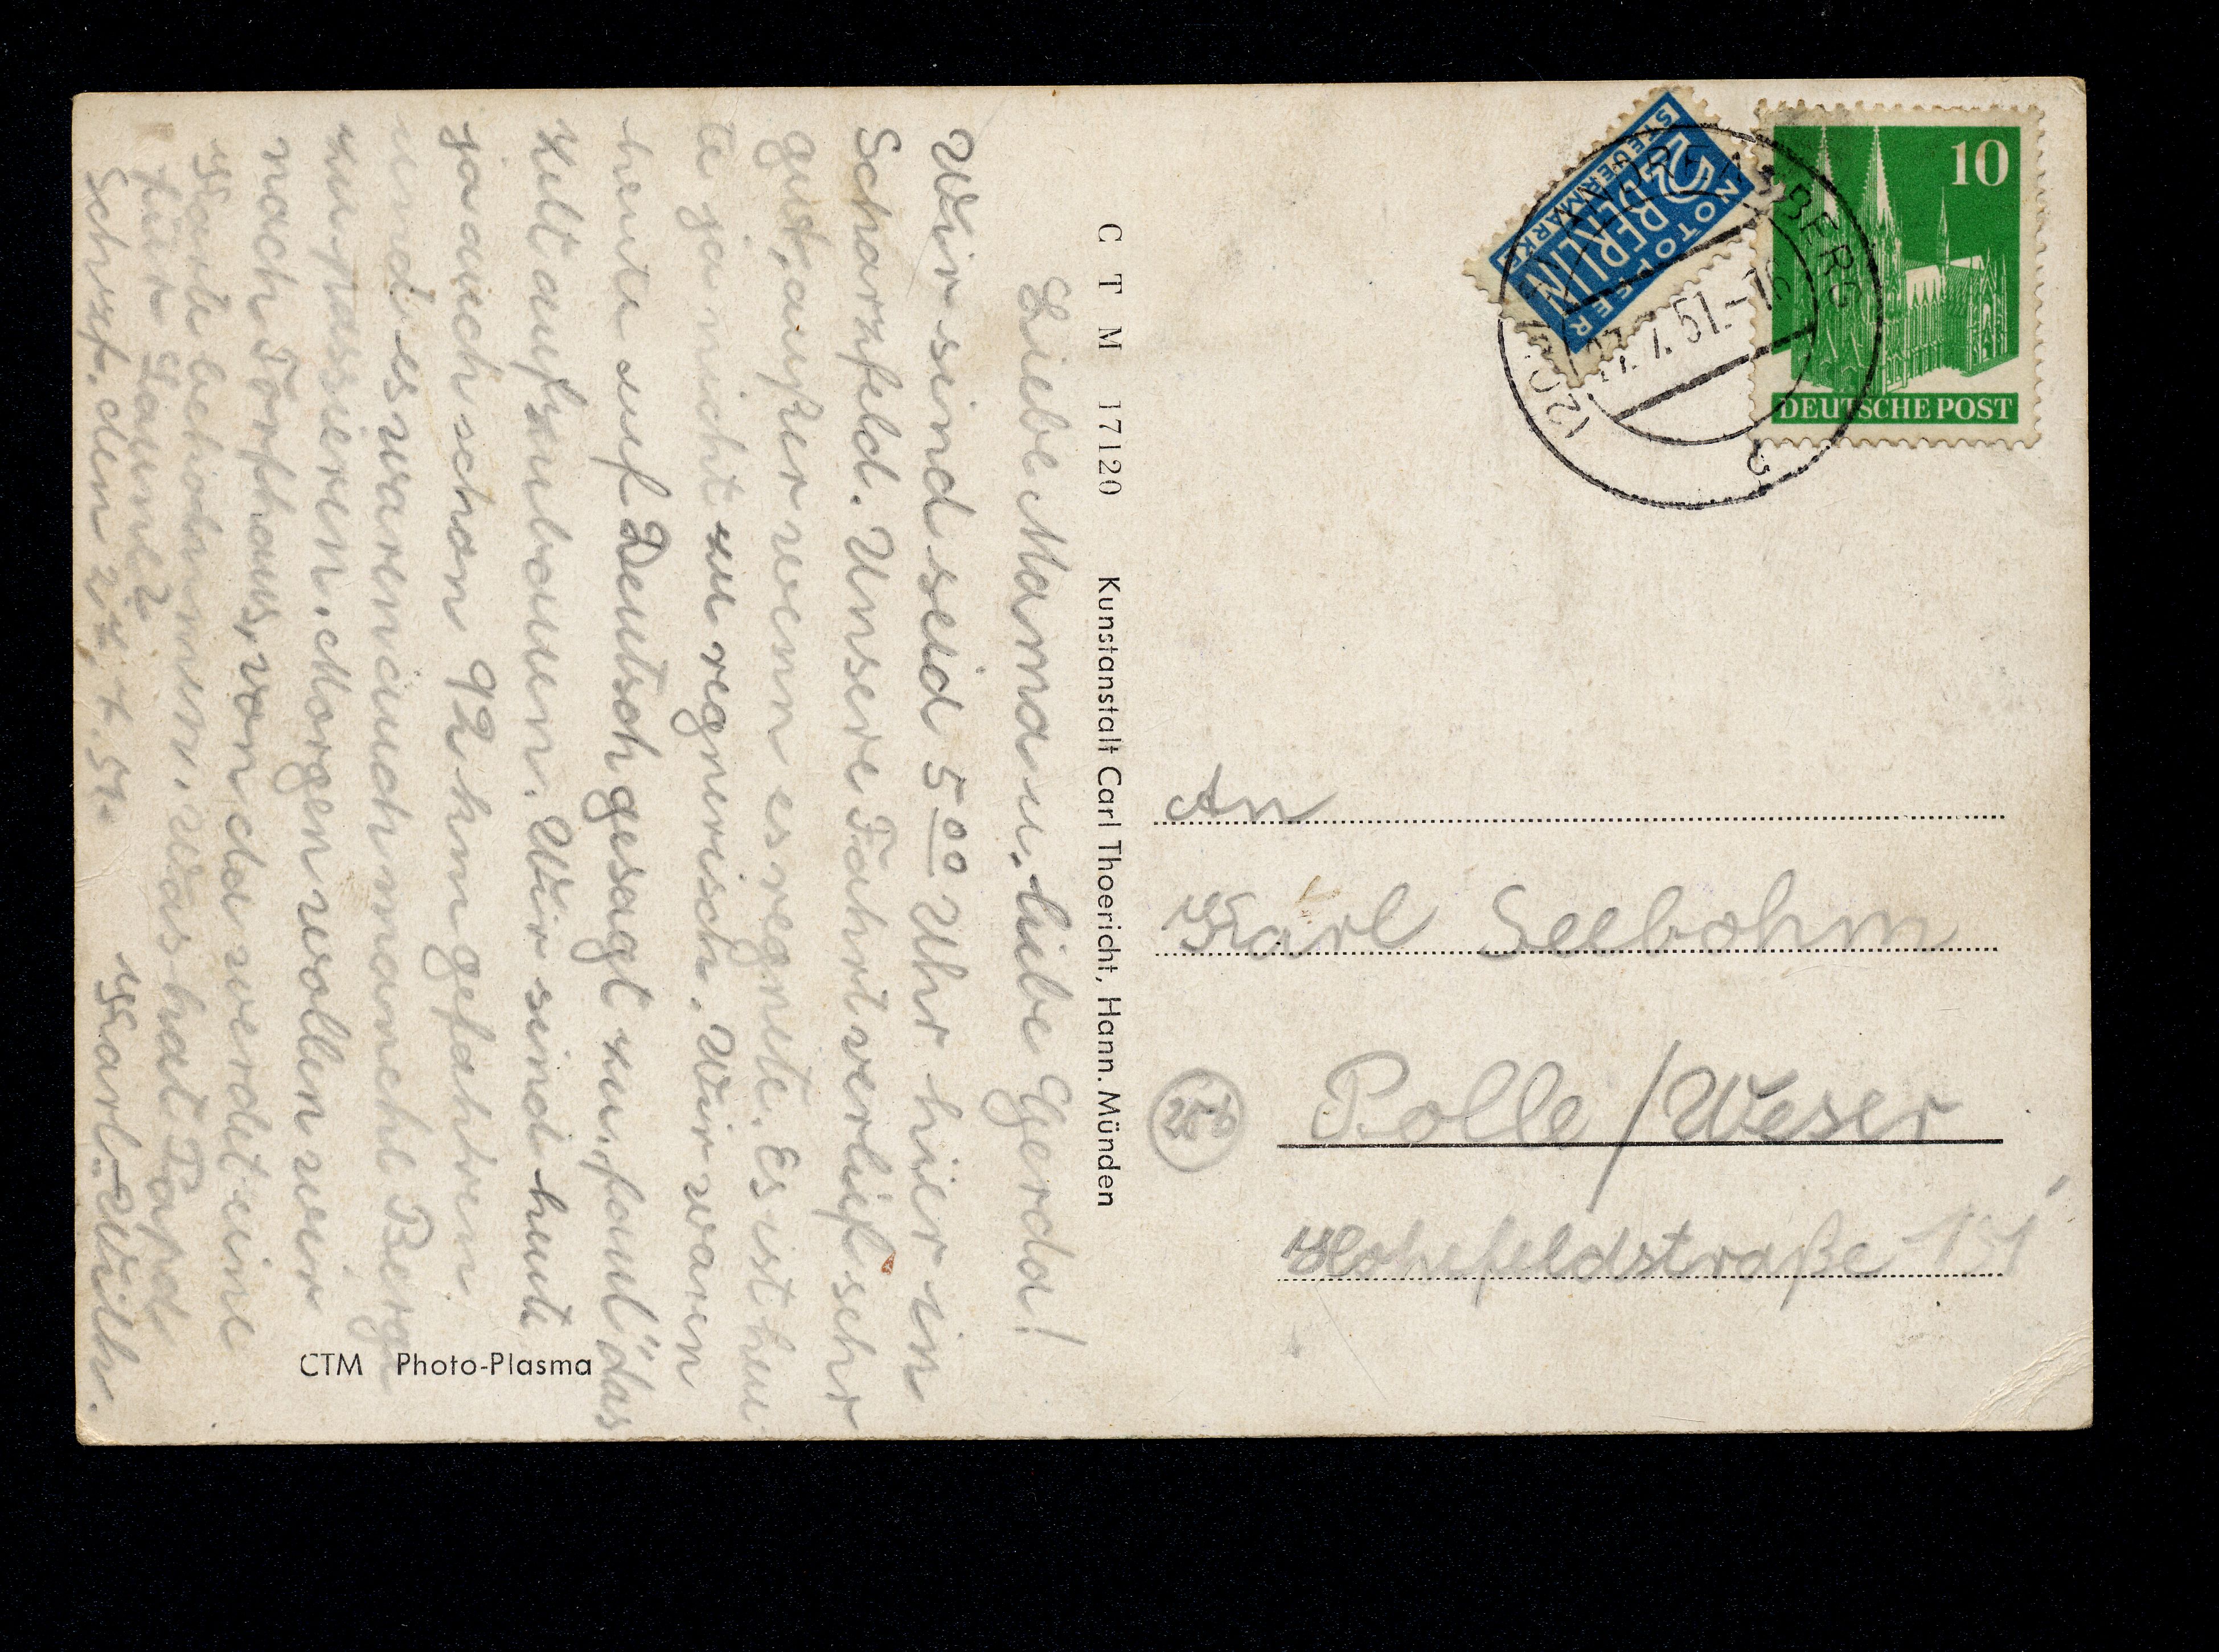 Liebe Mama u. liebe Gerda!
Wir sind seid 5 00 Uhr hier in
Scharzfeld. Unsere Fahrt verlief sehr
gut, außer wenn es regnete. Es ist heu
te ja nicht zu regnerisch. Wir waren
heute auf Deutsch gesagt zu "faul" das
Zelt aufzubauen. Wir sind heute
ja auch schon 92 km gefahren
und es waren auch manche Berge
zu passieren. Morgen wollen wir
nach Torfhaus, von da werdet eine
Karte bekommen. Was hat Papa
für Laune?
Schrzf. den 27. 7. 51.
Karl-Wilh.
C T M 17120 Kunstanstalt Carl Thoericht, Hann. Münden
CTM Photo-Plasma
NOTOPFER
2 BERLIN
STEUERMARKE
10
DEUTSCHE POST
7.51.-
An
Karl Seebohm
Polle/Weser
Hohefeldstraße